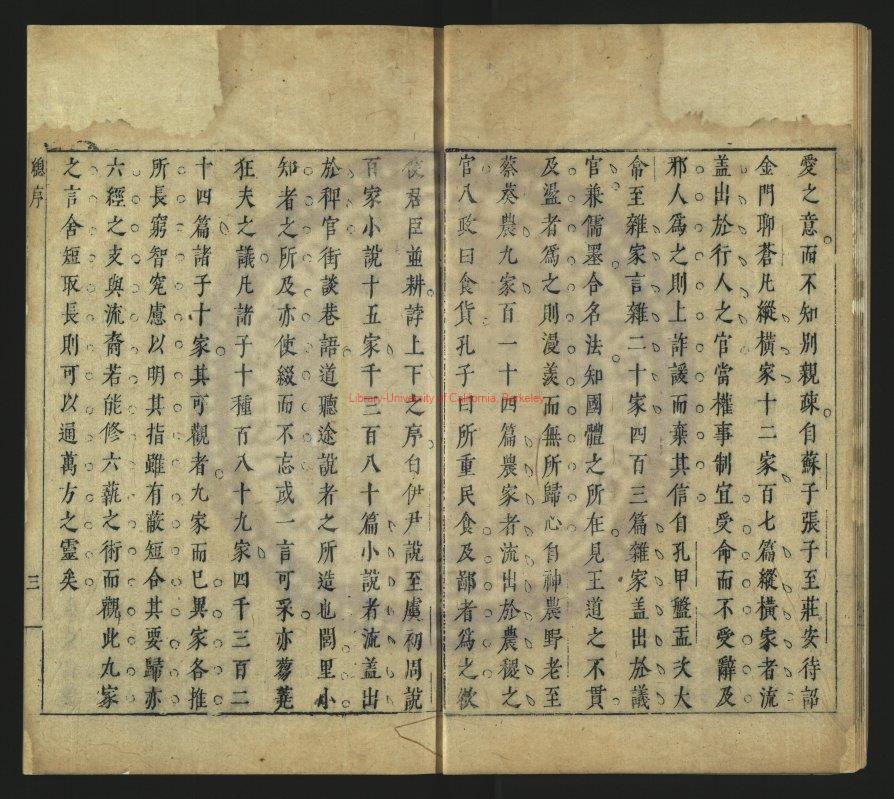 愛之意而不知別親疎自蘇子張子至莊安待詔
金門聊蒼凡縱橫家十二家百七篇縱橫家者流
蓋出於行人之官當權事制宜受命而不受辭及
邪人爲之則上詐諼而棄其信自孔甲盤盂次大
命至雜家言雜二十家四百三篇雜家蓋出於議
官兼儒墨合名法知國體之所在見王道之不貫
及盪者爲之則漫羨而無所歸心自神農野老至
蔡葵農九家百一十四篇農家者流出於農稷之
官八政曰食貨孔子曰所重民食及鄙者爲之欲
使君臣並耕誖上下之序自伊尹說至虞初周說
百家小說十五家千三百八十篇小說者流蓋出
於稗官街談巷語道聽途說者之所造也閭里小
知者之所及亦使綴而不忘或一言可采亦蒭蕘
狂夫之議凡諸子十種百八十九家四千三百二
十四篇諸子十家其可觀者九家而已異家各推
所長窮智究慮以明其指雖有蔽短合其要歸亦
六經之支與流裔若能修六蓺之術而觀此九家
之言舍短取長則可以通萬方之靈矣
總序
三
Library-University of California, Berkeley